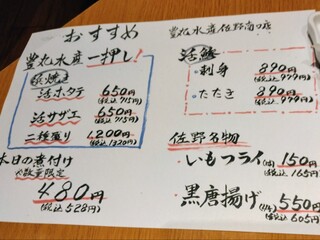 おすすめ
豊丸水産一押し!
浜焼き
活ホタテ 650円
(税込715円)
活サザエ 650円
(税込715円)
二種盛り 1,200円
(税込1320円)
本日の煮付け
数量限定
480円
(税込528円)
豊丸水産佐野南口店
活鯵
・刺身 890円
(税込979円)
・たたき 890円
(税込979円)
佐野名物
・いもフライ 150円
(税込165円)
・黒唐揚げ 550円
(税込605円)